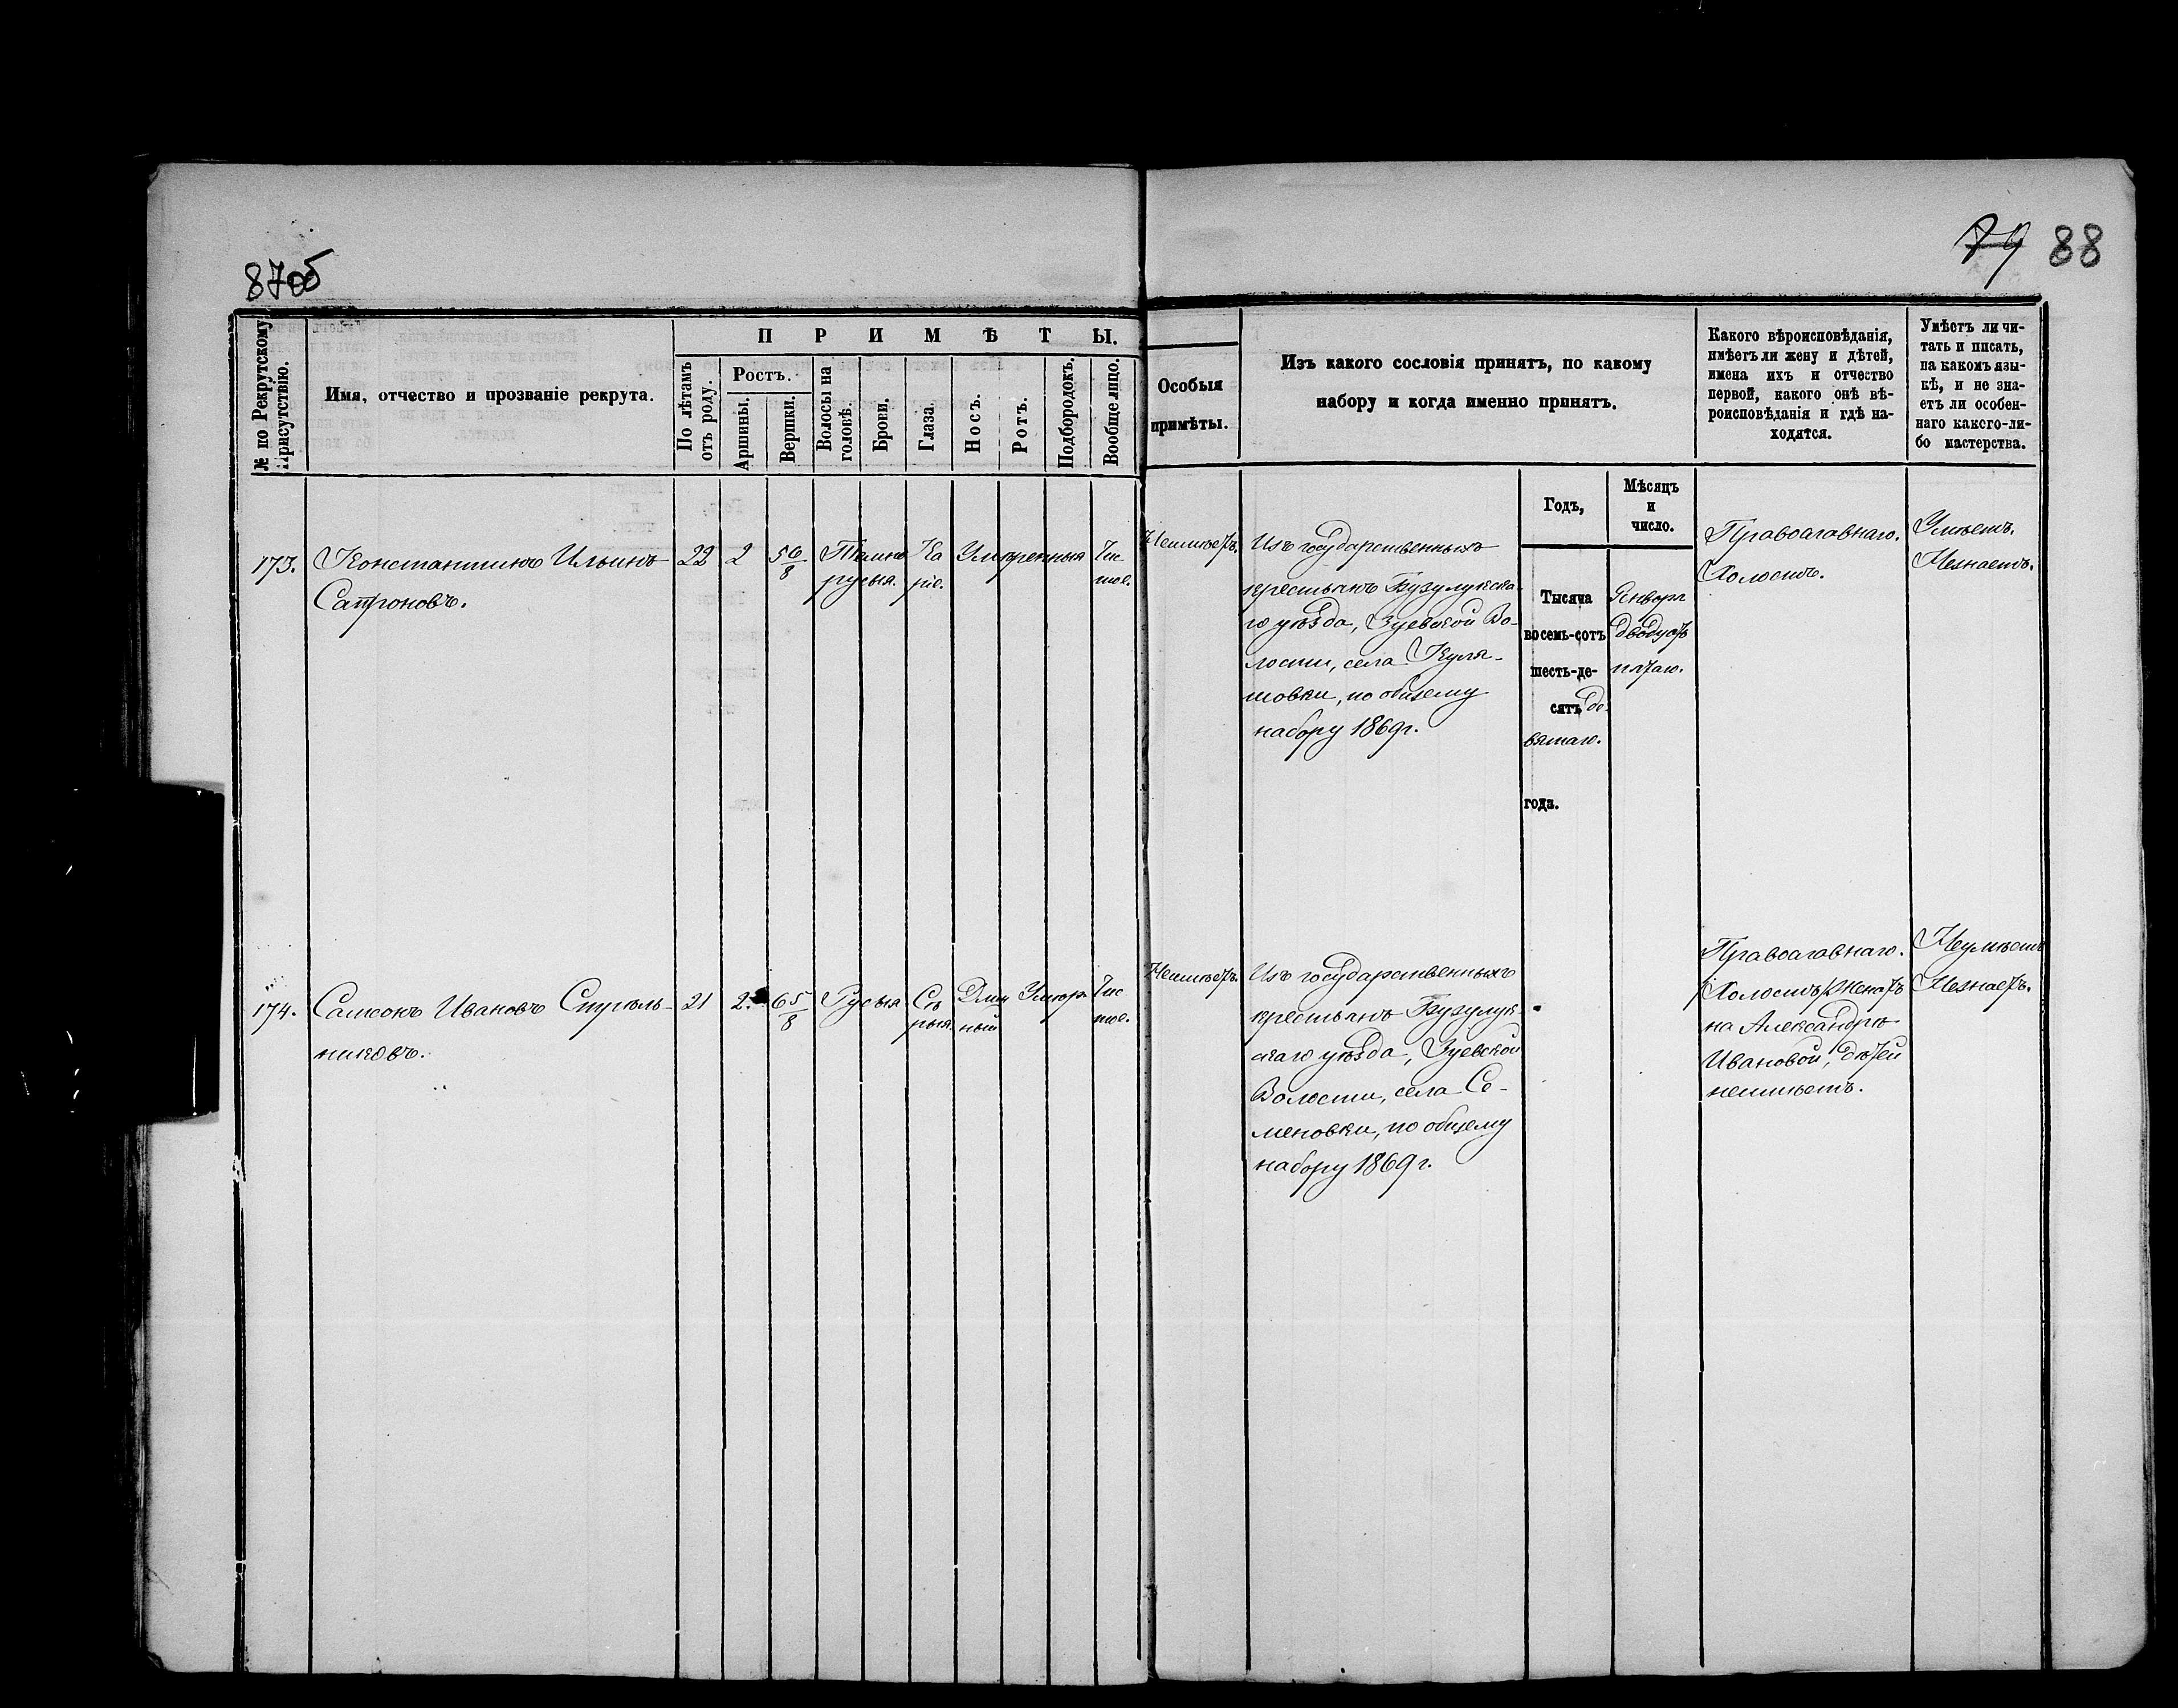 87об
79 88
№ по Рекрутскому
Присутствію.
Имя, отчество и прозваніе рекрута.
ПРИМѢТЫ.
По лѣтамъ
отъ роду.
Ростъ.
Аршины.
Вершки.
Волосы на
головѣ.
Брови.
Глаза.
Носъ.
Ротъ.
Подбородокъ.
Вообще лицо.
Особыя
примѣты.
Изъ какого сословія принятъ, по какому
набору и когда именно принятъ.
Какого вѣроисповѣданія,
имѣетъ ли жену и дѣтей,
имена ихъ и отчество
первой, какого онѣ вѣ-
роисповѣданія и гдѣ на-
ходятся.
Умѣетъ ли чи-
тать и писать,
на какомъ язы-
кѣ, и не зна-
етъ ли особен-
наго какого-ли-
бо мастерства.
Годъ,
Мѣсяцъ
и
число.
173.
Константинъ Ильинъ
Сапроновъ.
22
2
5 6/8
Темно
русыя.
Ка
ріе.
Умѣренныя
Чис
тое.
Неимѣетъ.
Изъ государственныхъ
крестьянъ Бузулукска-
го уѣзда, Зуевской Во-
лости, села Куля-
шовки, по общему
набору 1869 г.
Тысяча
восемь-сотъ
шесть-де-
сятъ де-
вятаго.
года.
Января
двадцать
пятаго.
Православнаго.
Холостъ.
Умѣетъ.
Незнаетъ.
174.
Самсонъ Ивановъ Стрѣль-
никовъ.
21
2.
6 5/8
Русыя
Сѣ
рыя.
Длин
ный
Умѣр.
Чис
тое.
Неимѣетъ.
Изъ государственныхъ
крестьянъ Бузулук-
скаго уѣзда, Зуевской
Волости, села Се-
меновки, по общему
набору 1869 г.
Православнаго.
Холостъ, женатъ
на Александрѣ
Ивановой, дѣтей
неимѣетъ.
Неумѣетъ
Незнаетъ.